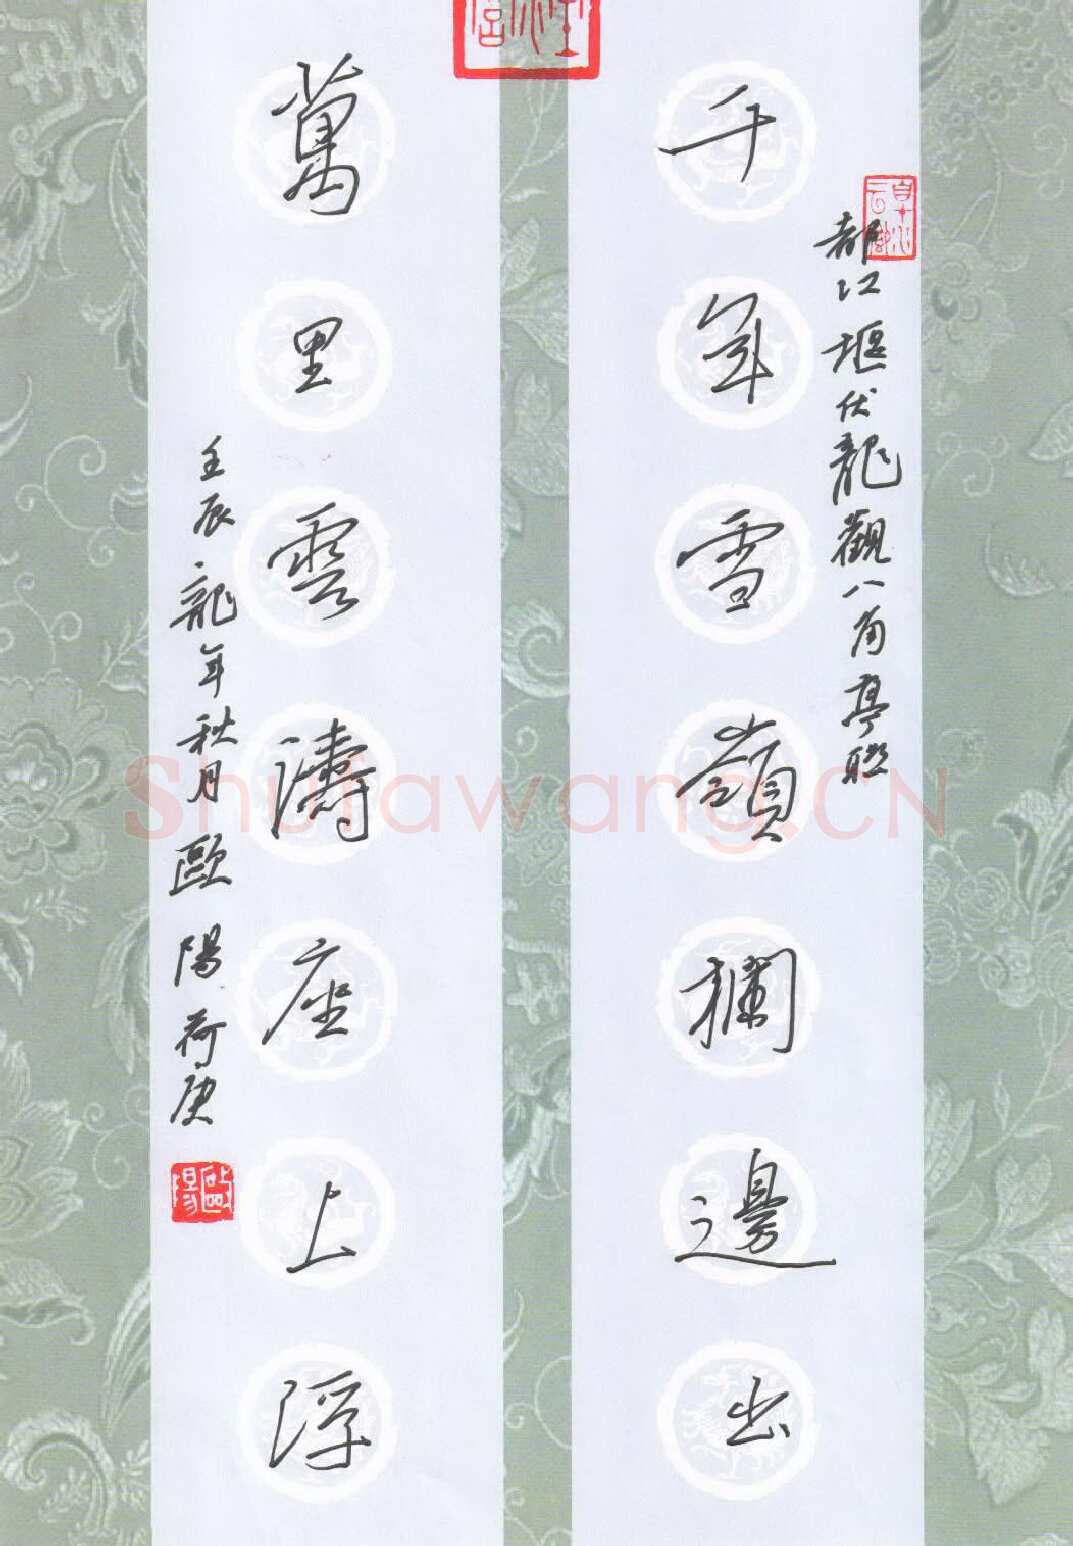 都江堰伏龍觀八角亭聯
千年雪嶺欄邊出
萬里雲濤座上浮
壬辰龍年秋月歐陽荷庚
Shufawang.CN